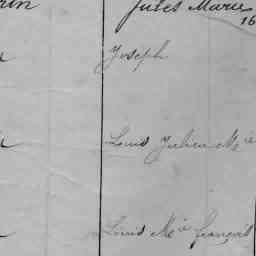 Jules Marie
16
Joseph
Louis Julien Mie
Louis Mie françois